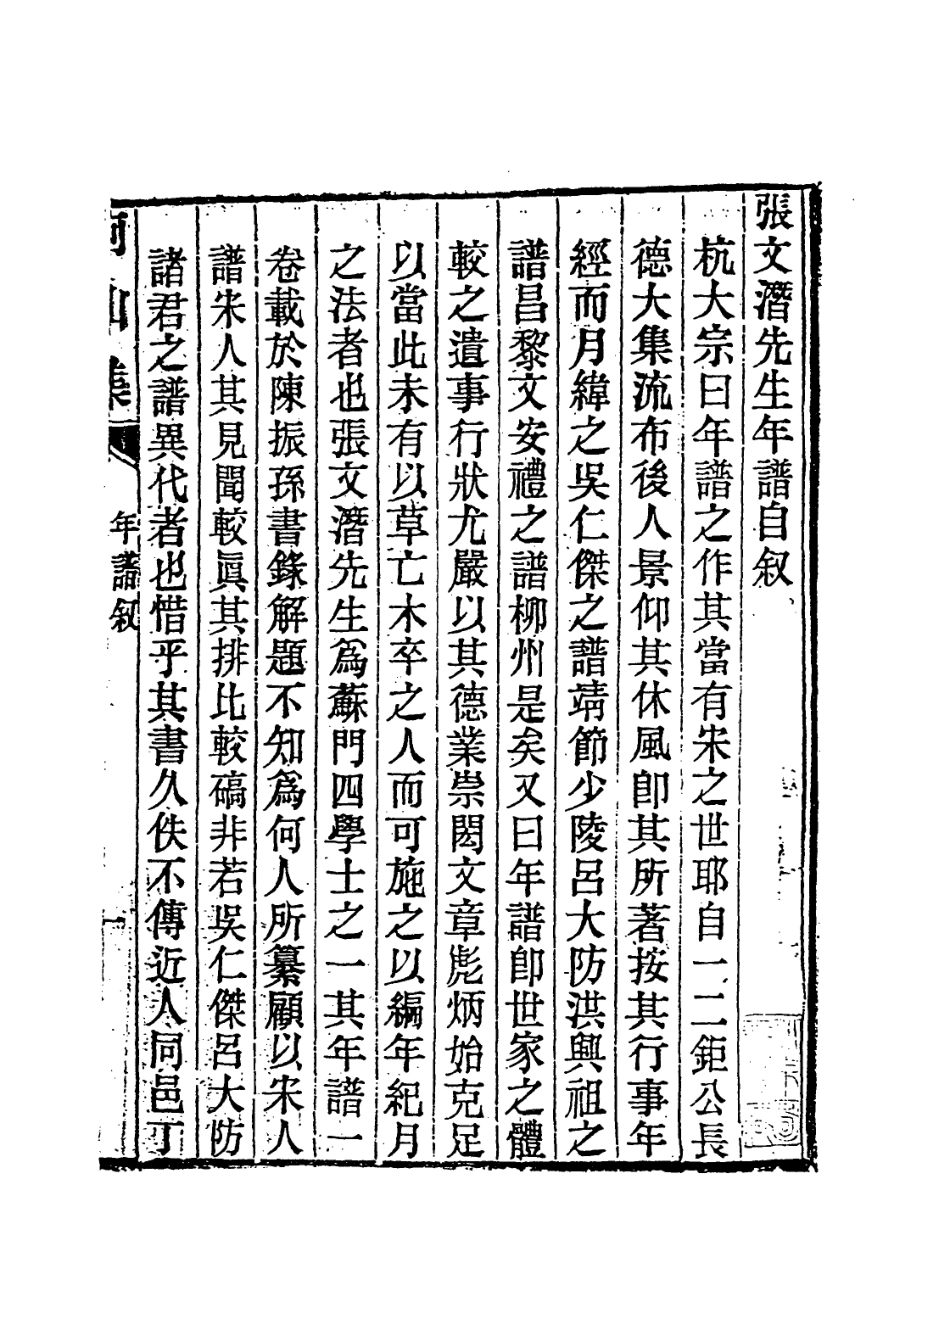 張文潛先生年譜自叙
杭大宗曰年譜之作其當有宋之世耶自一二鉅公長
德大集流布後人景仰其休風卽其所著按其行事年
經而月緯之吳仁傑之譜靖節少陵呂大防洪興祖之
譜昌黎文安禮之譜柳州是矣又曰年譜卽世家之體
較之遺事行狀尤嚴以其德業崇閎文章彪炳始克足
以當此未有以草亡木卒之人而可施之以編年紀月
之法者也張文潛先生爲蘇門四學士之一其年譜一
卷載於陳振孫書錄解題不知爲何人所纂顧以宋人
譜宋人其見聞較眞其排比較碻非若吳仁傑呂大防
諸君之譜異代者也惜乎其書久佚不傳近人同邑丁
柯山集
年譜叙
一